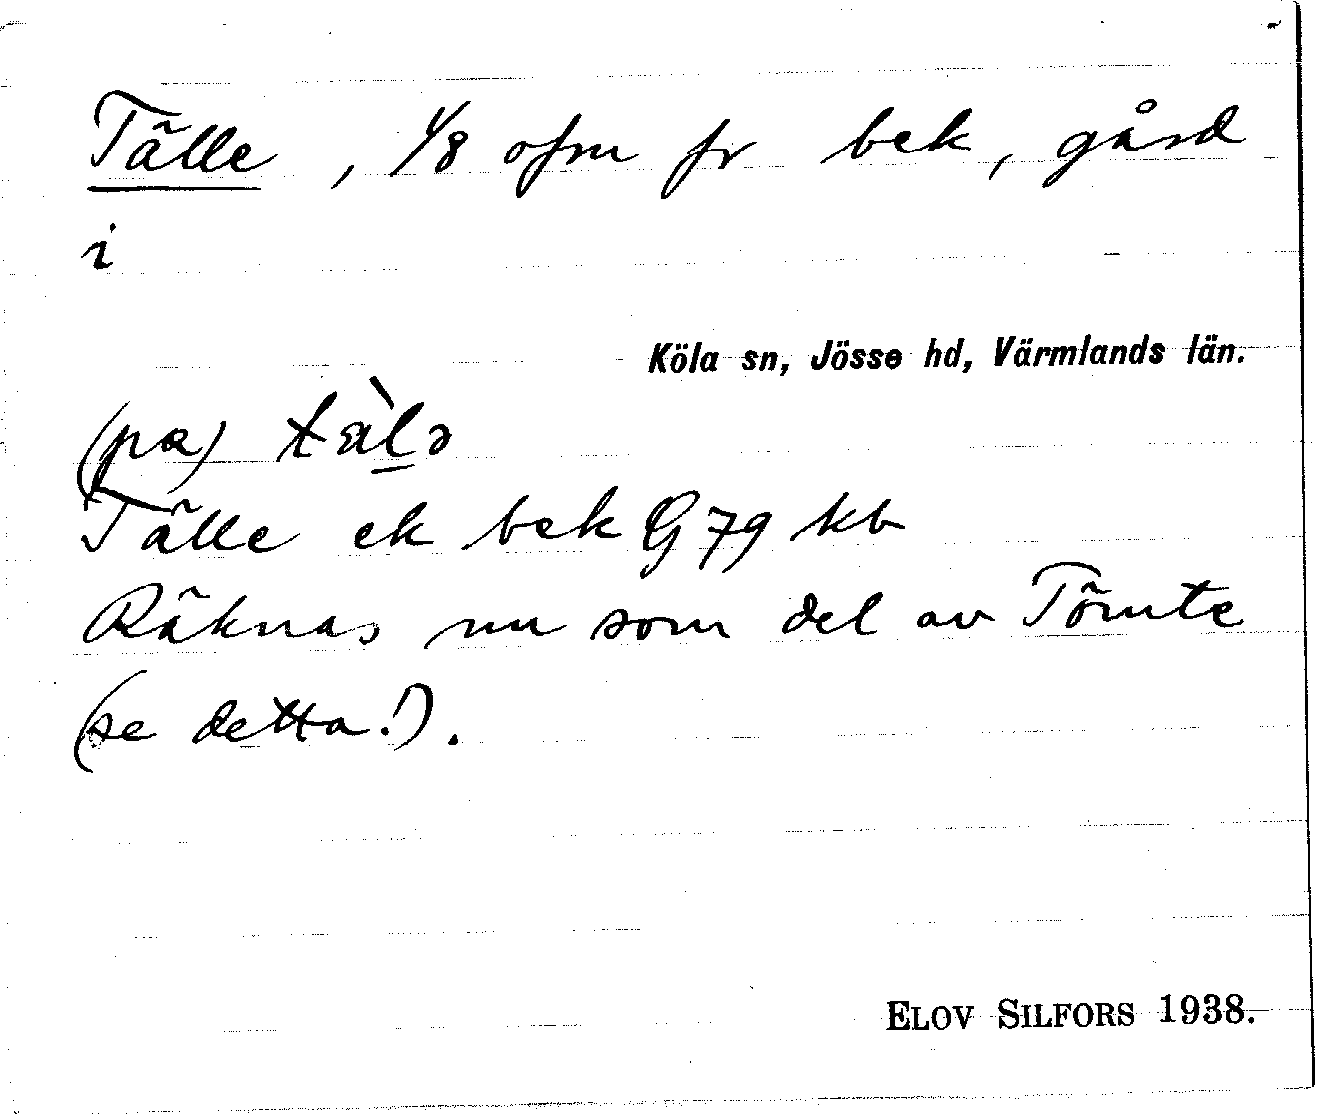 Tälle, 1/8 ofm fr bek, gård
i
Köla sn, Jösse hd, Värmlands län.
(pa) tàlə
Tälle ek bek G 79 kb
Räknas nu som del av Tömte
(se detta!).
ELOV SILFORS 1938.